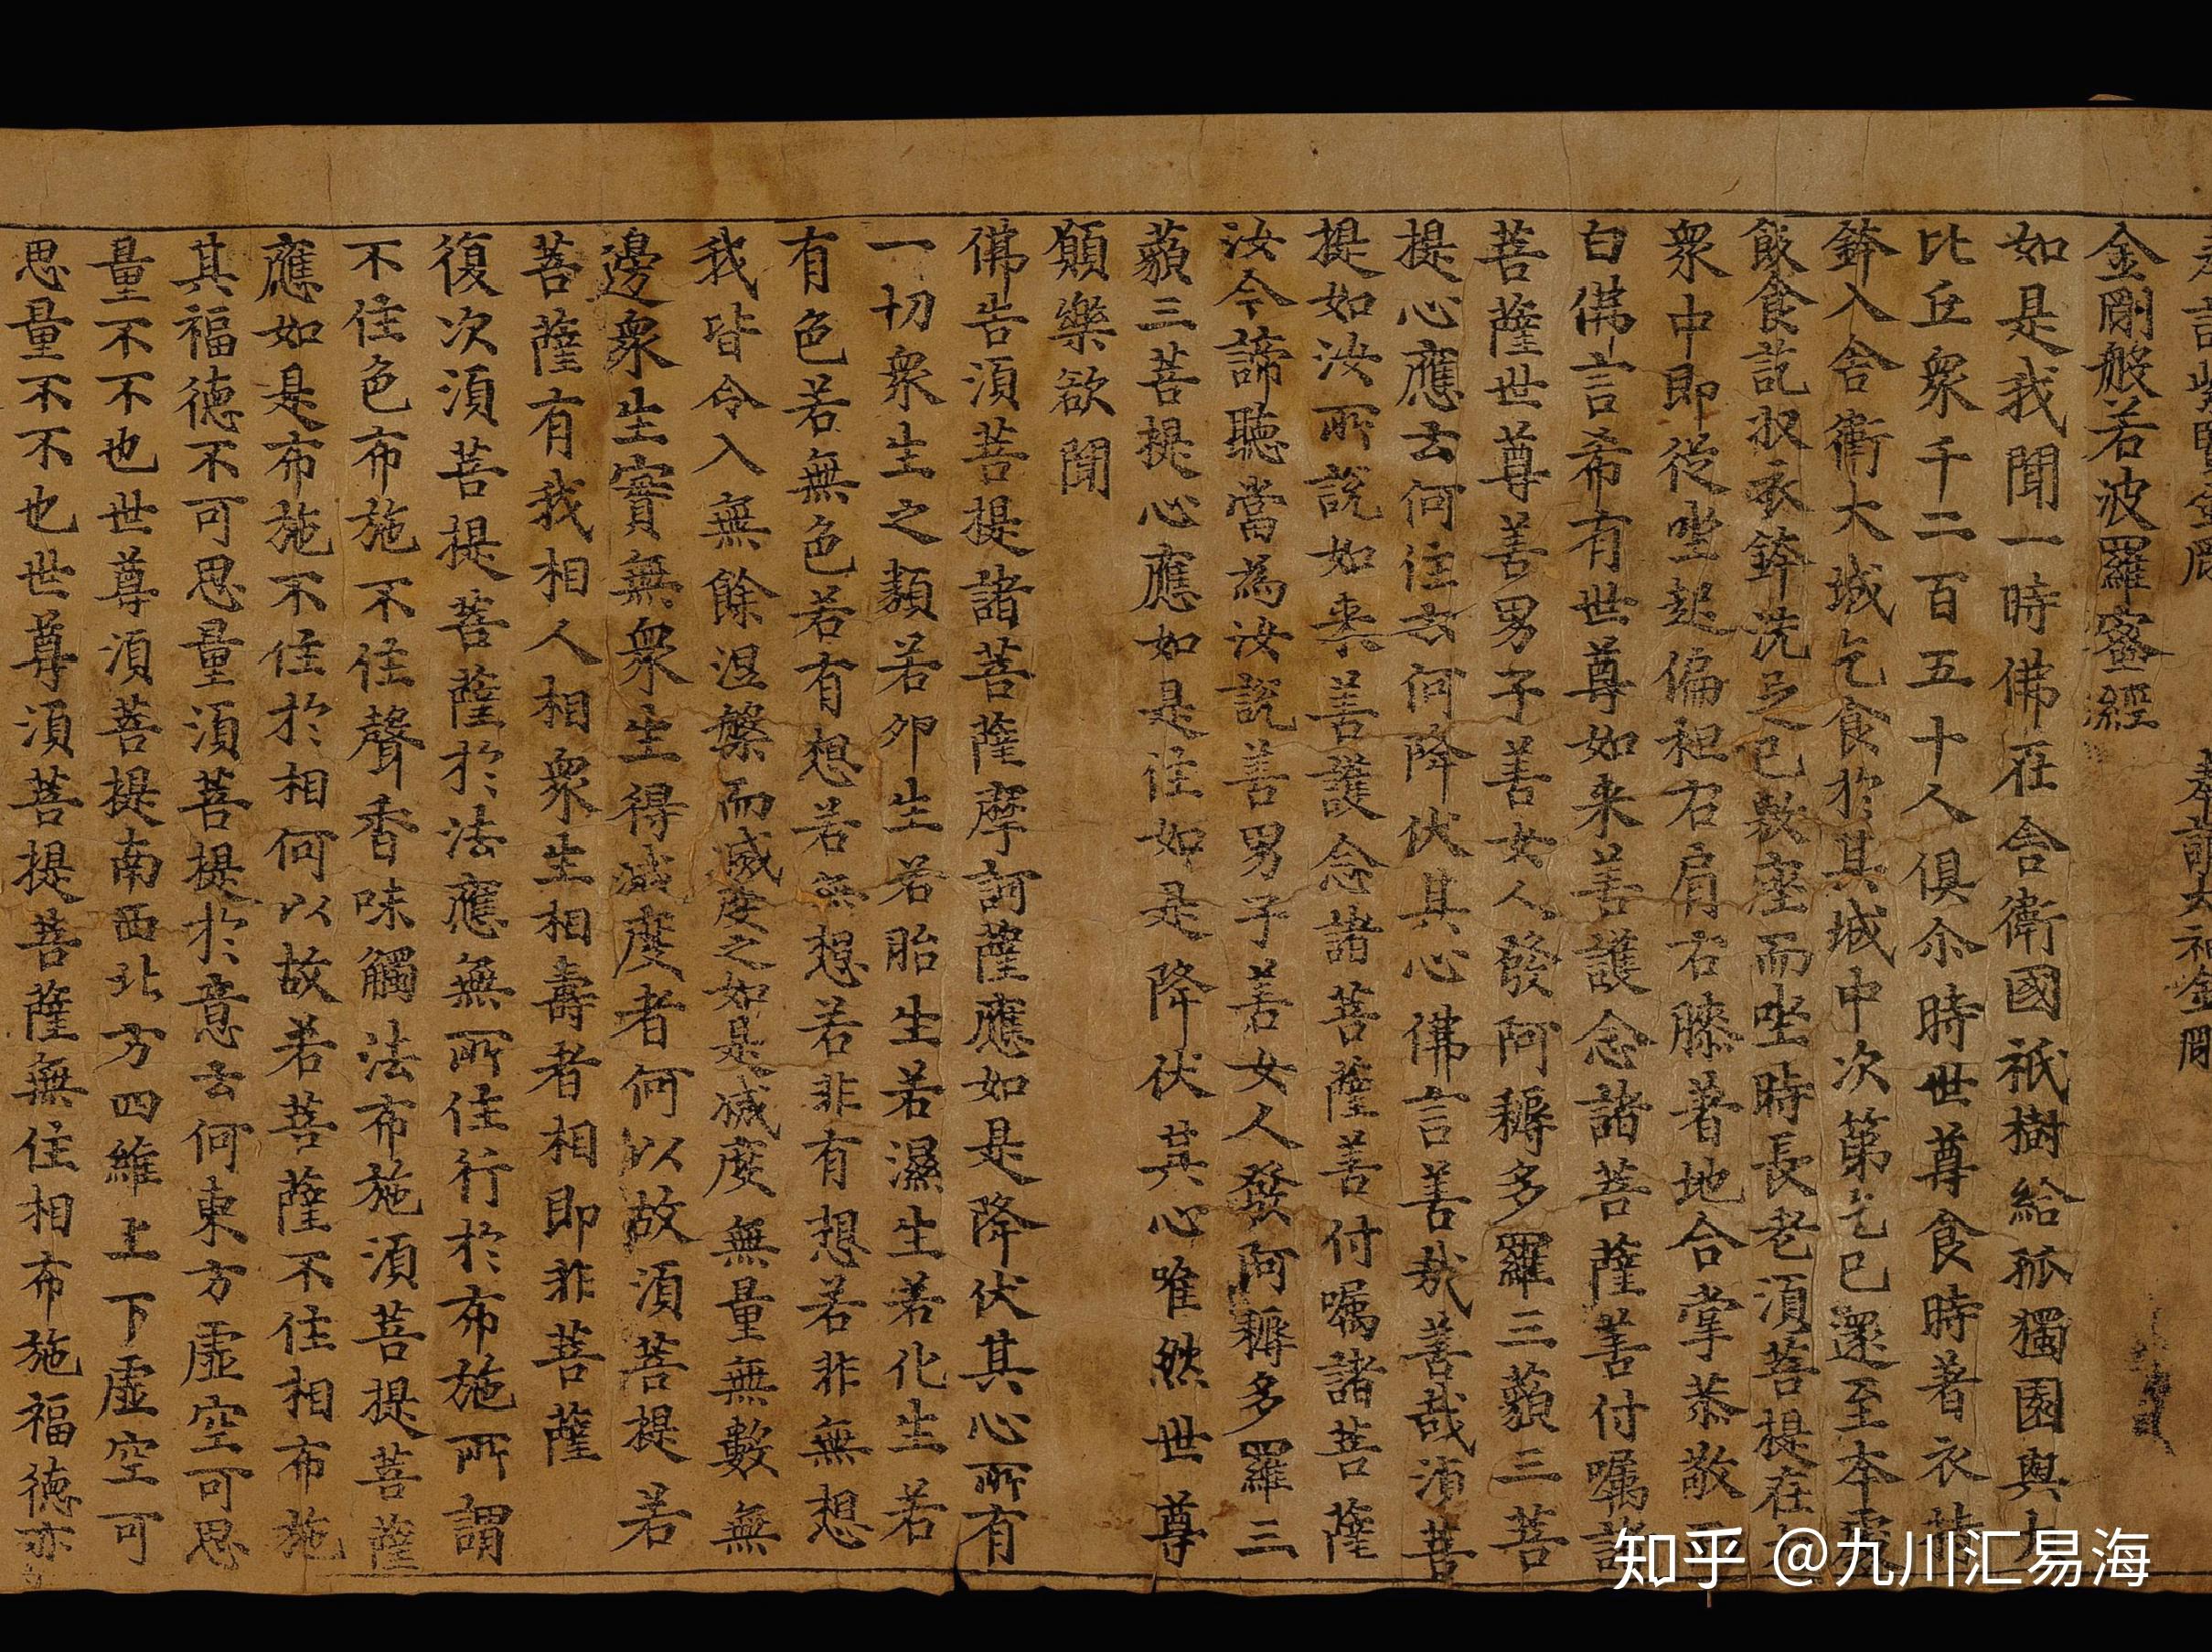 奉請紫賢金剛 奉請大神金剛
金剛般若波羅蜜經
如是我聞一時佛在舍衛國祇樹給孤獨園與大
比丘衆千二百五十人俱尒時世尊食時著衣持
鉢入舍衛大城乞食於其城中次第乞已還至本處
飯食訖収衣鉢洗足已敷座而坐時長老須菩提在大
衆中即從坐起偏袒右肩右膝著地合掌恭敬而
白佛言希有世尊如来善護念諸菩薩善付囑諸
菩薩世尊善男子善女人發阿耨多羅三藐三菩
提心應云何住云何降伏其心佛言善哉善哉須菩
提如汝所說如来善護念諸菩薩善付囑諸菩薩
汝今諦聽當為汝說善男子善女人發阿耨多羅三
藐三菩提心應如是住如是降伏其心唯然世尊
願樂欲聞
佛告須菩提諸菩薩摩訶薩應如是降伏其心所有
一切衆生之類若卵生若胎生若濕生若化生若
有色若無色若有想若無想若非有想若非無想
我皆令入無餘涅槃而滅度之如是滅度無量無數無
邊衆生實無衆生得滅度者何以故須菩提若
菩薩有我相人相衆生相壽者相即非菩薩
復次須菩提菩薩於法應無所住行於布施所謂
不住色布施不住聲香味觸法布施須菩提菩薩
應如是布施不住於相何以故若菩薩不住相布施
其福德不可思量須菩提於意云何東方虛空可思
量不不也世尊須菩提南西北方四維上下虛空可
思量不不也世尊須菩提菩薩無住相布施福德亦
知乎 @九川汇易海